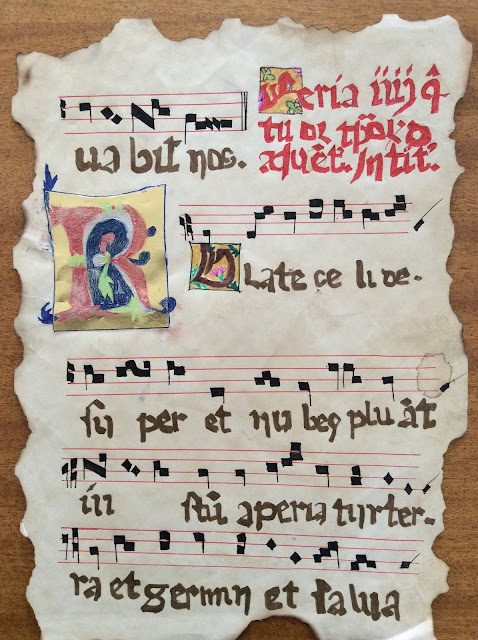 ua bit nos.
Feria iiij q̂
tu or
aduēt. Intit.
R
rate ce li de.
su per et nu beꝫ plu āt
iu stū aperia tur ter-
ra et germin et salua